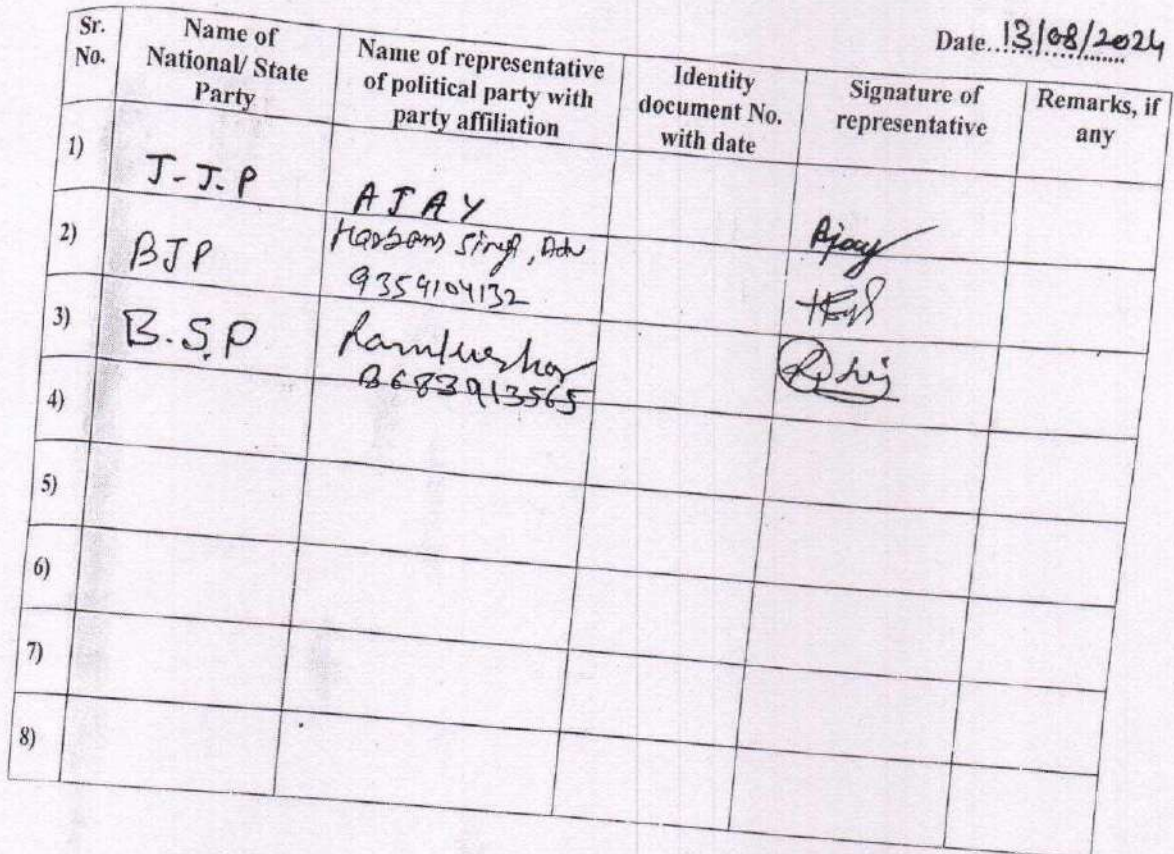 Date..13/08/2024
Sr. No.
Name of National/ State Party
Name of representative of political party with party affiliation
Identity document No. with date
Signature of representative
Remarks, if any
1)
J-J.P
AJAY
Ajay
2)
BJP
Harbans Singh, Adv
9359104132
3)
B.S.P
8683913565
4)
5)
6)
7)
8)